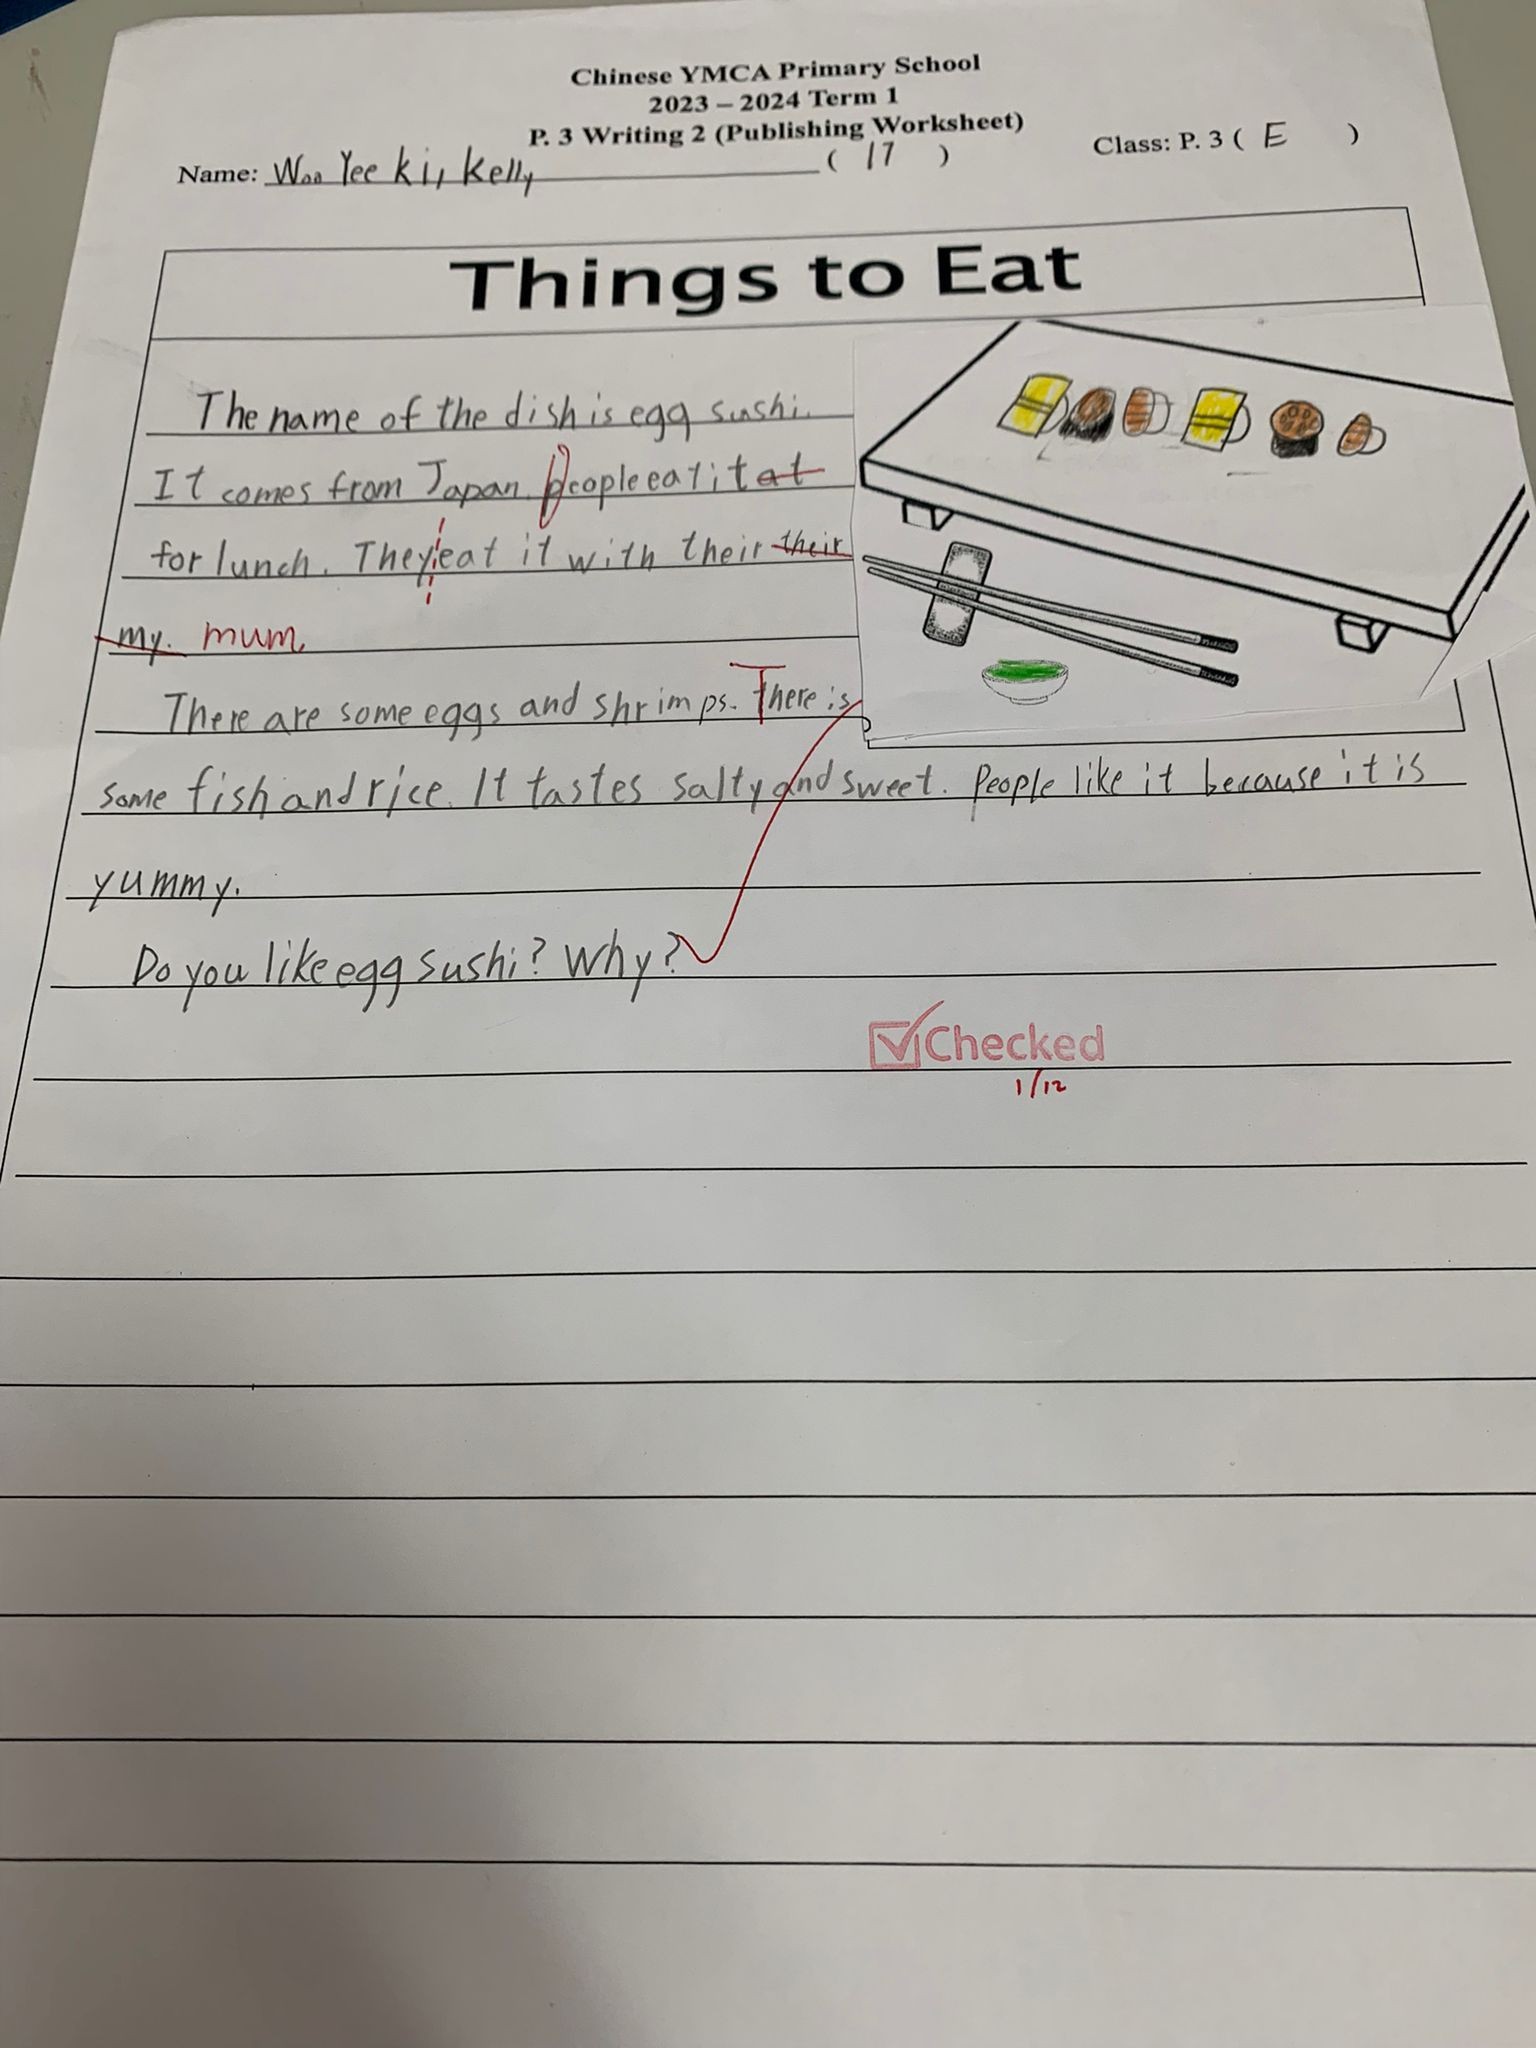 Chinese YMCA Primary School
2023 – 2024 Term 1
P. 3 Writing 2 (Publishing Worksheet)
Name: Woo Yee ki, Kelly ( 17 ) Class: P. 3 ( E )
Things to Eat
The name of the dish is egg sushi.
It comes from Japan. People eat it at
for lunch. They eat it with their their
my. mum.
There are some eggs and shrimps. There is
some fish and rice. It tastes salty and sweet. People like it because it is
yummy.
Do you like egg sushi? Why?
Checked
1/12